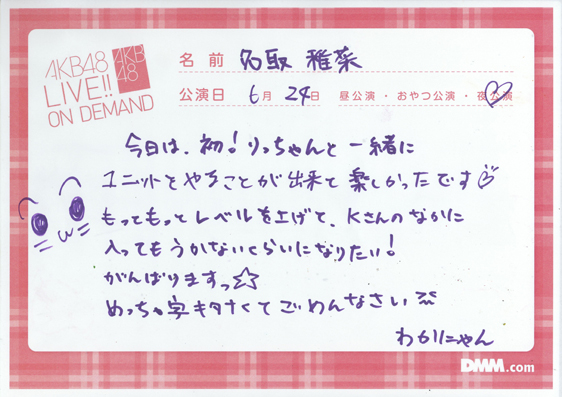 AKB48
LIVE!!
ON DEMAND
AKB
48
名前 名取 稚菜
公演日 6月 24日 昼公演・おやつ公演・夜公演
今日は、初!りっちゃんと一緒に
ユニットとやることが出来て楽しかったです
もってもってレベルを上げて、Kさんのなかに
入ってもうかないくらいになりたい!
がんばりますっ☆
めっちゃ字キタナくてごめんなさい
わかにゃん
DMM.com